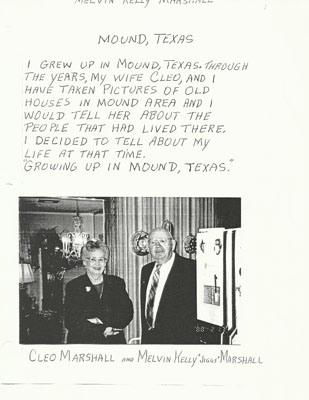 MELVIN KELLY MARSHALL
MOUND, TEXAS
I GREW UP IN MOUND, TEXAS. THROUGH
THE YEARS, MY WIFE CLEO, AND I
HAVE TAKEN PICTURES OF OLD
HOUSES IN MOUND AREA AND I
WOULD TELL HER ABOUT THE
PEOPLE THAT HAD LIVED THERE.
I DECIDED TO TELL ABOUT MY
LIFE AT THAT TIME.
"GROWING UP IN MOUND, TEXAS."
CLEO MARSHALL AND MELVIN KELLY "JIGGS" MARSHALL